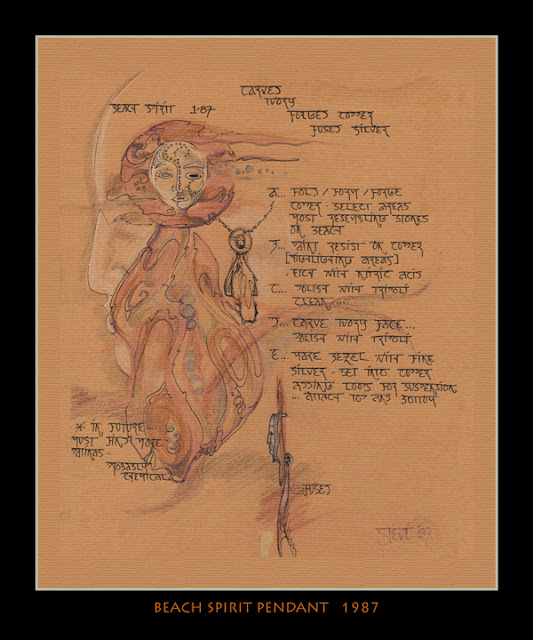 BEACH SPIRIT 1·87
CARVED
IVORY
FORGED COPPER
FUSED SILVER
A... FOLD / FORM / FORGE
COPPER - SELECT AREAS
MOST RESEMBLING STONES
ON BEACH
B... PAINT RESIST ON COPPER
[HIGHLIGHTING AREAS]
- ETCH WITH NITRIC ACID
C... POLISH WITH TRIPOLI
CLEAN ....
D... CARVE IVORY FACE...
POLISH WITH TRIPOLI
E... MAKE BEZEL WITH FINE
SILVER - SET INTO COPPER
ADDING LOOPS FOR SUSPENSION
... ATTACH TOP AND BOTTOM
* IN FUTURE
MUST FIND MORE
PATINAS -
PROBABLY
CHEMICAL
FUSED
STEVE '87
BEACH SPIRIT PENDANT 1987